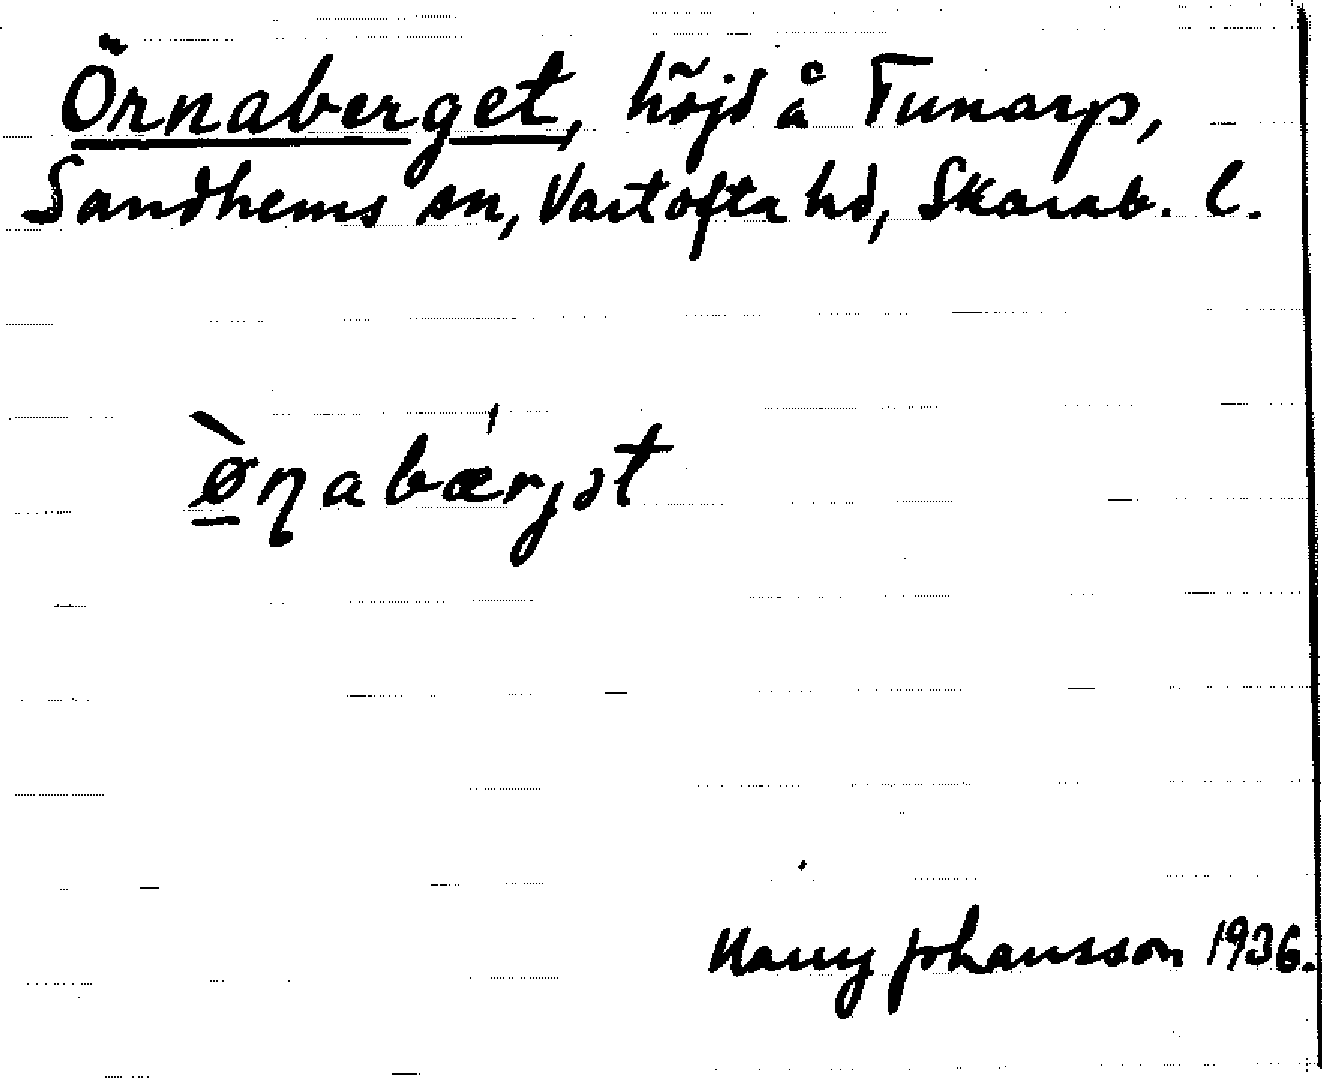 Örnaberget, höjd å Tunarp,
Sandhems sn, Vartofta hd, Skarab. l.
ø̲̀ɳabæ'rjət
Harry Johansson 1936.